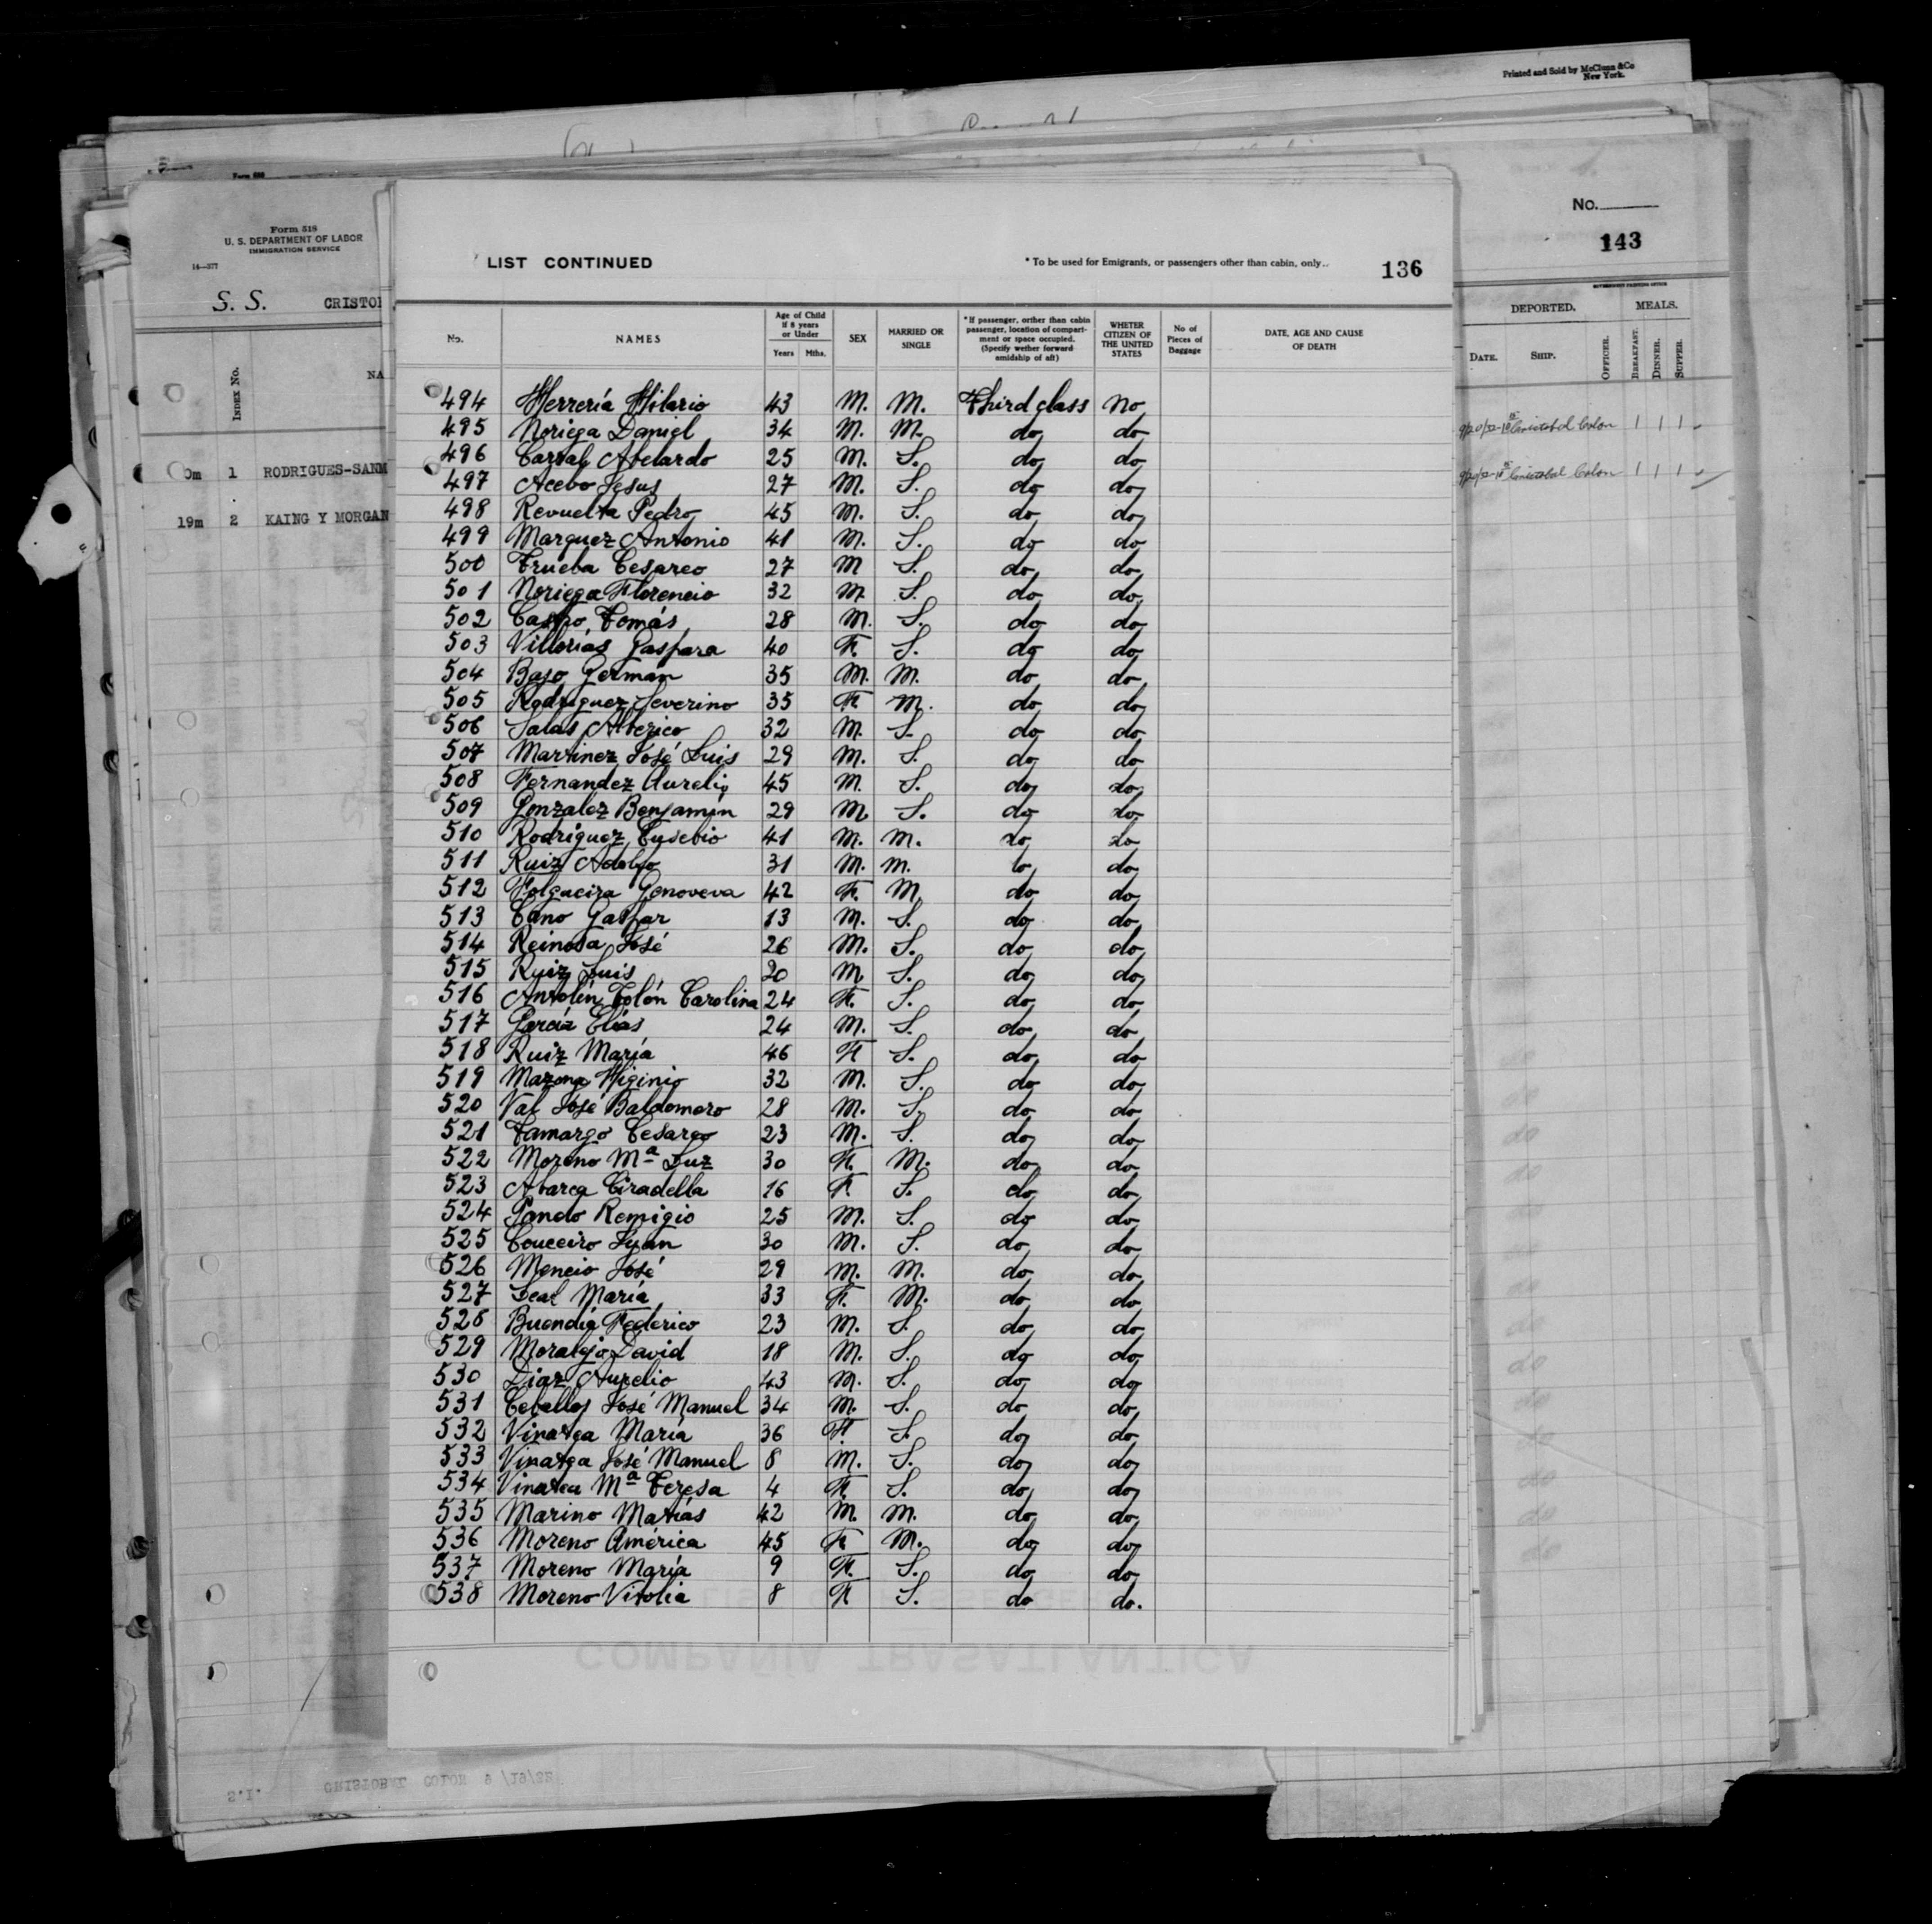 Printed and Sold by McClunn & Co
New York.
Form 518
U. S. DEPARTMENT OF LABOR
IMMIGRATION SERVICE
14—377
S. S. CRISTO
INDEX No.
NA
0m 1 RODRIGUES-SANM
19m 2 KAING Y MORGAN
LIST CONTINUED
* To be used for Emigrants, or passengers other than cabin, only..
136
No. NAMES Age of Child if 8 years or Under Years Mths. SEX MARRIED OR SINGLE * If passenger, orther than cabin passenger, location of compartment or space occupied. (Specify wether forward amidship of aft) WHETER CITIZEN OF THE UNITED STATES No of Pieces of Baggage DATE, AGE AND CAUSE OF DEATH
494 Herrería Hilario 43 M. M. Third class no
495 Noriega Daniel 34 M. M. do do
496 Carral Abelardo 25 M. S. do do
497 Acebo Jesus 27 M. S. do do
498 Revuelta Pedro 45 M. S. do do
499 Marquez Antonio 41 M. S. do do
500 Trueba Cesareo 27 M S. do do
501 Noriega Florencio 32 M S. do do
502 Castro Tomás 28 M. S. do do
503 Villorias Gaspara 40 F. S. do do
504 Baso Germán 35 M. M. do do
505 Rodriguez Severino 35 F M. do do
506 Salas Alberico 32 M. S. do do
507 Martinez José Luis 29 M. S. do do
508 Fernandez Aurelio 45 M. S. do do
509 Gonzalez Benjamín 29 M S. do do
510 Rodriguez Eusebio 41 M. M. do do
511 Ruiz Adolfo 31 M. M. do do
512 Folgueira Genoveva 42 F. M. do do
513 Cano Gaspar 13 M. S. do do
514 Reinosa José 26 M. S. do do
515 Ruiz Luis 20 M S. do do
516 Antolín Tolón Carolina 24 F. S. do do
517 García Elías 24 M. S. do do
518 Ruiz María 46 F S. do do
519 Mazona Higinio 32 M. S. do do
520 Val José Baldomero 28 M. S. do do
521 Tamargo Cesareo 23 M. S. do do
522 Moreno Mª Luz 30 F. M. do do
523 Abarca Ciradella 16 F. S. do do
524 Pando Remigio 25 M. S. do do
525 Couceiro Juan 30 M. S. do do
526 Mencio José 29 M. M. do do
527 Leal María 33 F. M. do do
528 Buendía Federico 23 M. S. do do
529 Moralejo David 18 M. S. do do
530 Diaz Aurelio 43 M. S. do do
531 Ceballos José Manuel 34 M. S. do do
532 Vinatea María 36 F. S. do do
533 Vinatea José Manuel 8 M. S. do do
534 Vinatea Mª Teresa 4 F. S. do do
535 Marino Matías 42 M. M. do do
536 Moreno América 45 F M. do do
537 Moreno María 9 F. S. do do
538 Moreno Vitolia 8 F S. do do.
COMPAÑÍA TRASATLANTICA
No.
143
DEPORTED. MEALS.
DATE. SHIP. OFFICER. BREAKFAST. DINNER. SUPPER.
9/20/32 Cristobal Colon 1 1 1
9/20/32 Cristobal Colon 1 1 1
S.I. CRISTOBAL COLON 9/19/32